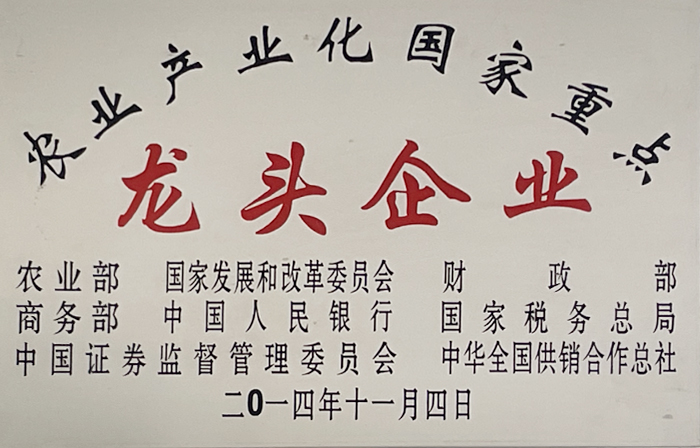 农业产业化国家重点
龙头企业
农业部 国家发展和改革委员会 财政部
商务部 中国人民银行 国家税务总局
中国证券监督管理委员会 中华全国供销合作总社
二0一四年十一月四日